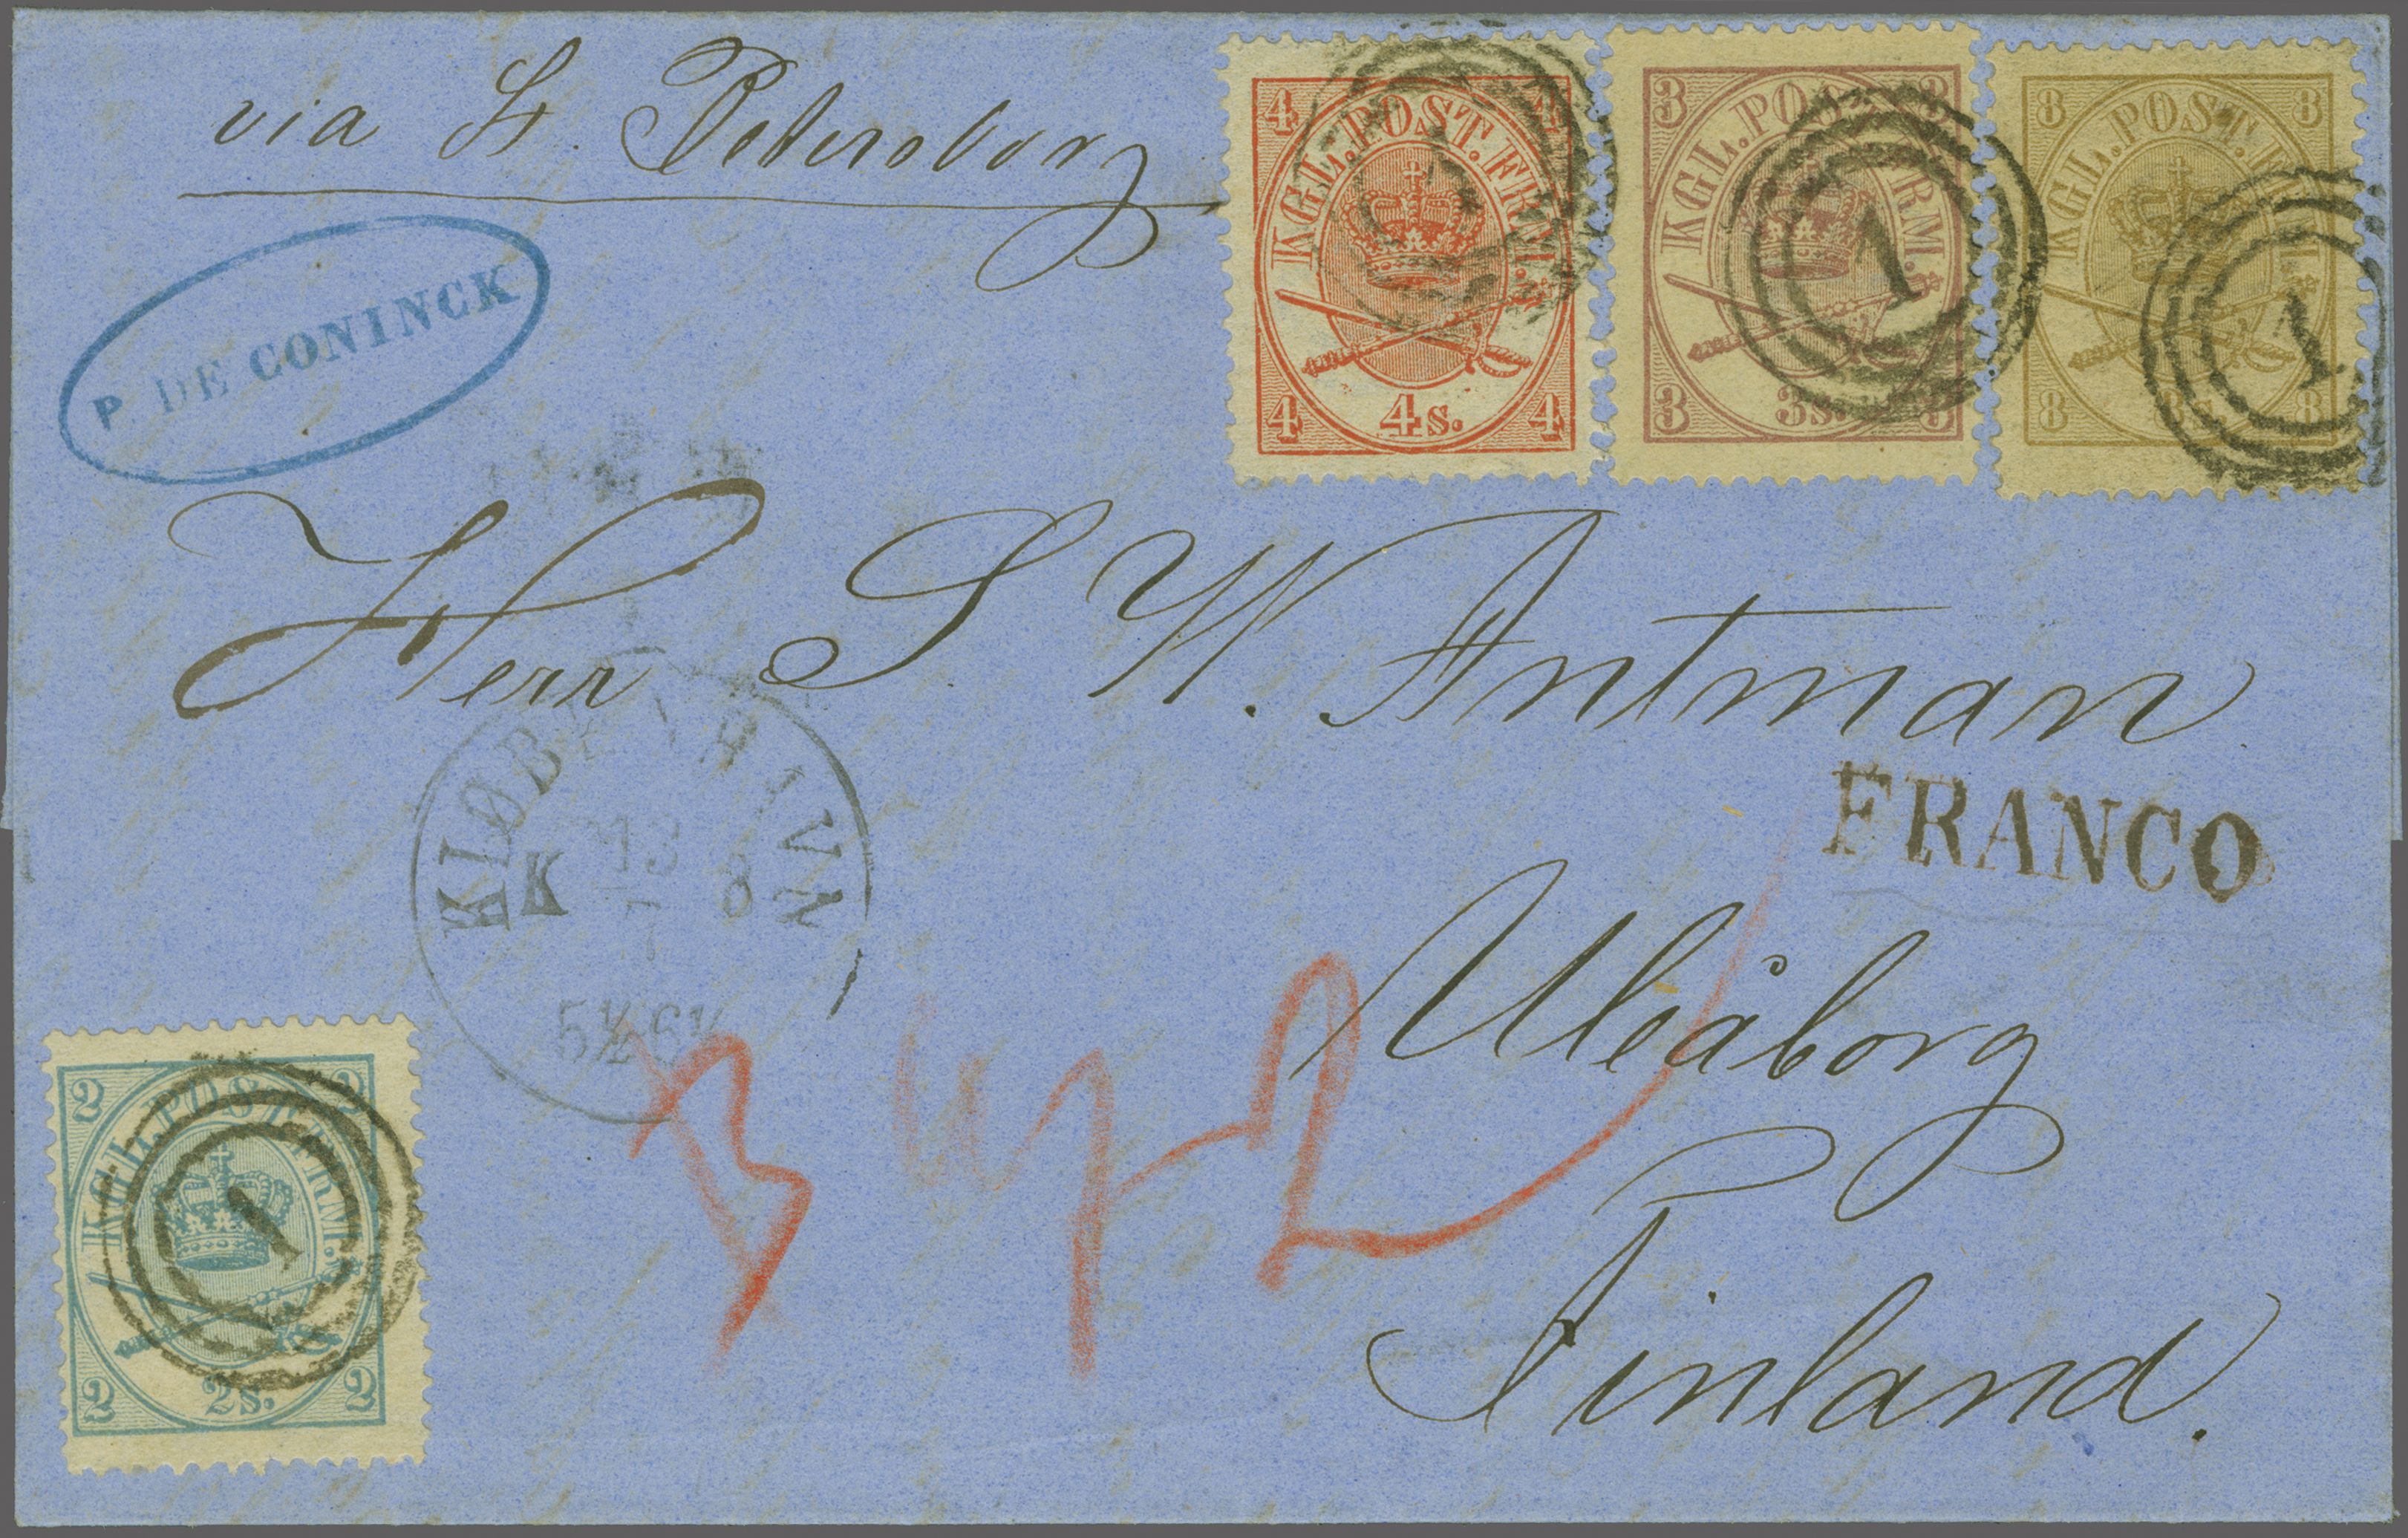 via St. Petersborg
P. DE CONINCK
4 4
KGL. POST. FRM.
4 4s. 4
3 3
KGL. POST. FRM.
3 3s. 3
1
8 8
KGL. POST. FRM.
8 8s. 8
1
Herr S. W. Antman
FRANCO
KIØBENHAVN
K 13 8
7
5½ 6½
Uleåborg
Finland.
2 2
KGL. POST. FRM.
2 2s. 2
1